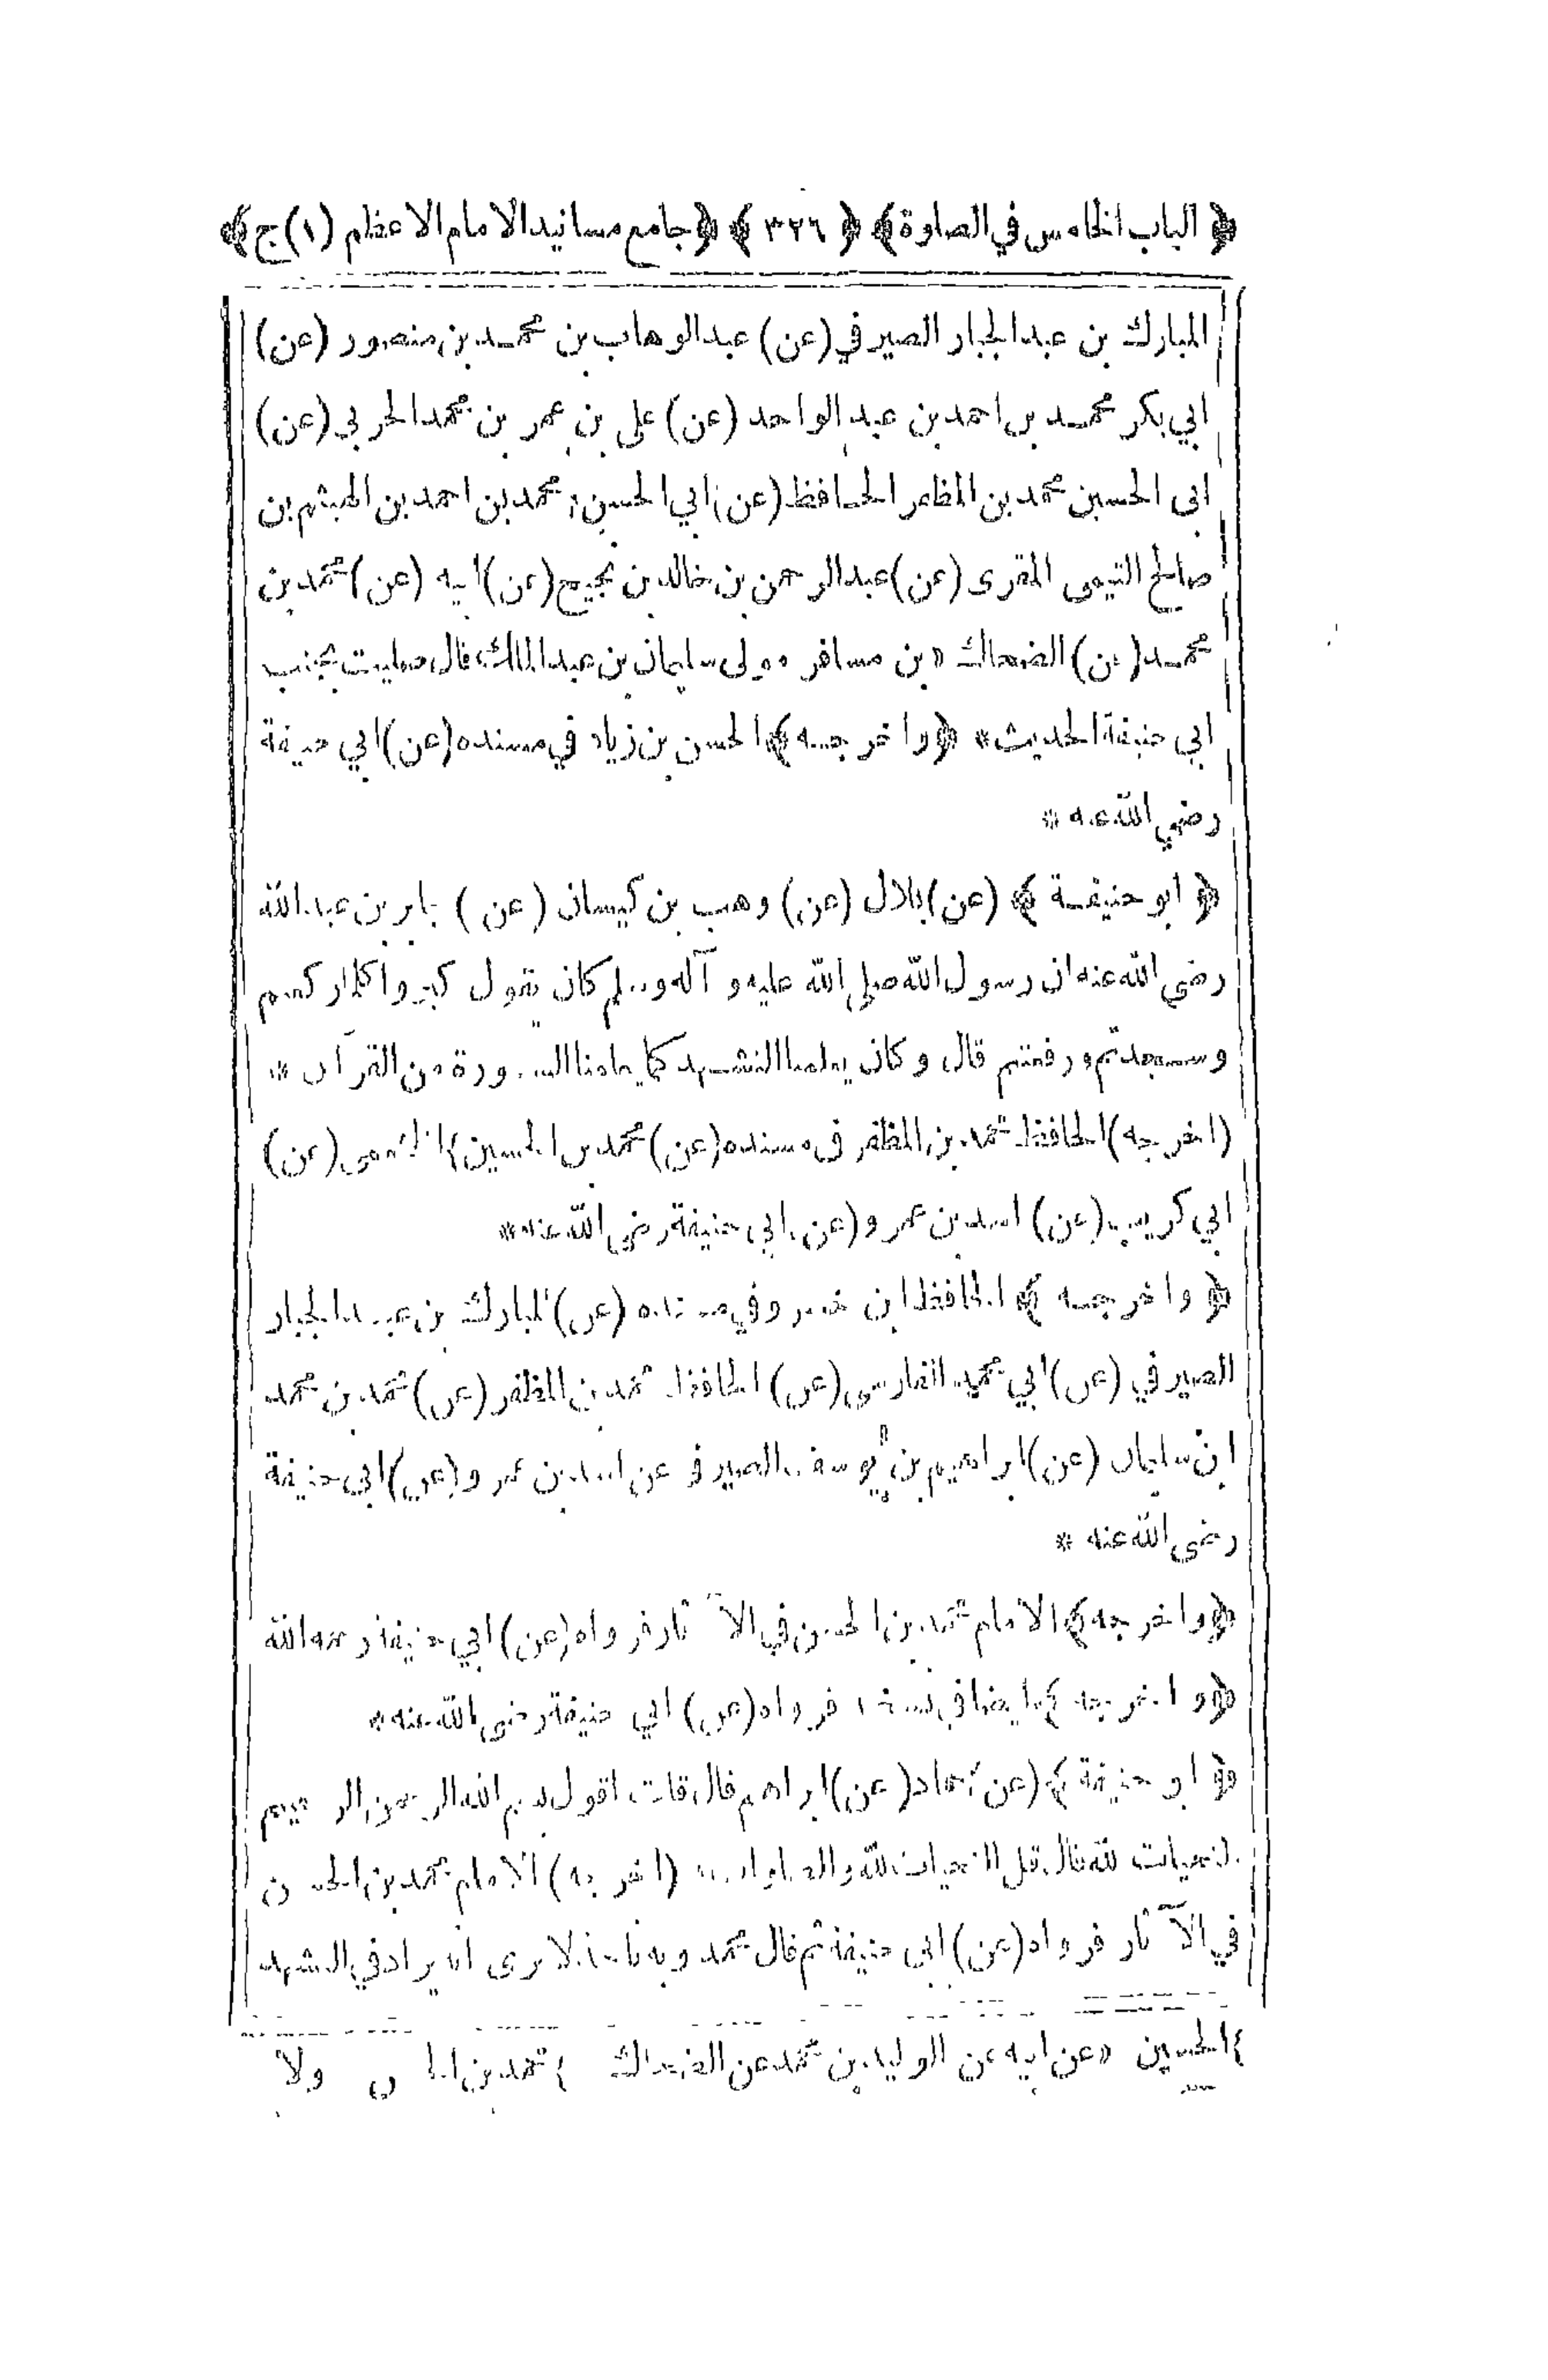 ﴿ الباب الخامس في الصلوة ﴾ ﴿ ٣٢٦ ﴾ ﴿ جامع مسانيد الامام الاعظم (١) ج ﴾
المبارك بن عبد الجبار الصيرفي (عن) عبد الوهاب بن محمد بن منصور (عن)
ابي بكر محمد بن احمد بن عبد الواحد (عن) على بن عمر بن محمد الحربى (عن)
ابى الحسين محمد بن المظفر الحافظ (عن) ابي الحسن محمد بن احمد بن الهيثم بن
صالح التيمى المقرى (عن) عبد الرحمن بن خالد بن نجيح (عن) ابيه (عن) محمد بن
محمد (عن) الضحاك « بن مسافر مولى سليمان بن عبد الملك قال صليت بجنب
ابي حنيفة الحديث * ﴿ واخرجه ﴾ الحسن بن زياد في مسنده (عن) ابي حنيفة
رضي الله عنه *
﴿ ابو حنيفة ﴾ (عن) بلال (عن) وهب بن كيسان (عن) جابر بن عبد الله
رضى الله عنه ان رسول الله صلى الله عليه و آله وسلم كان يقول كبروا كلما ركعتم
وسجدتم ورفعتم قال وكان يعلمنا التشهد كما يعلمنا السورة من القرآن *
(اخرجه) الحافظ محمد بن المظفر فى مسنده (عن) محمد بن الحسين (عن)
ابي كريب (عن) اسد بن عمرو (عن) ابى حنيفة رضى الله عنه *
﴿ واخرجه ﴾ الحافظ ابن خسرو في مسنده (عن) المبارك بن عبد الجبار
الصيرفي (عن) ابي محمد الفارسى (عن) الحافظ محمد بن المظفر (عن) محمد بن محمد
ابن سليمان (عن) ابراهيم بن يوسف الصيرفى عن اسد بن عمرو (عن) ابى حنيفة
رضى الله عنه *
﴿ واخرجه ﴾ الامام محمد بن الحسن في الآثار فرواه (عن) ابي حنيفة رحمه الله
﴿ واخرجه ﴾ ايضا في نسخته فرواه (عن) ابي حنيفة رضى الله عنه *
﴿ ابو حنيفة ﴾ (عن) حماد (عن) ابراهيم قال قلت اقول بسم الله الرحمن الرحيم
التحيات لله قال قل التحيات لله والصلوات * (اخرجه) الامام محمد بن الحسن
في الآثار فرواه (عن) ابى حنيفة ثم قال محمد وبه ناخذ لا نرى ان يزاد في التشهد
الحسين « عن ابيه عن الوليد بن محمد عن الضحاك محمد بن ولا